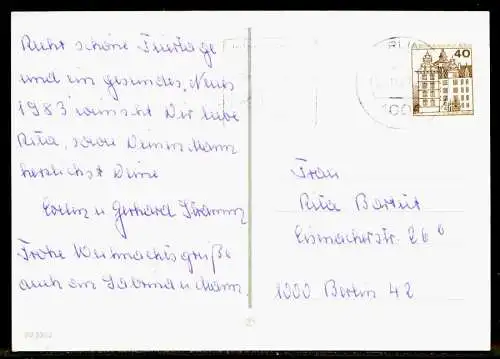 Recht schöne Feiertage
und ein gesundes, Neues
1983 wünscht Dir liebe
Rita, sowie Deinem Mann
herzlichst Deine
u Gerhard
Frohe Weihnachtsgrüße
auch an Sabrina u Mann
40
100
Frau
Rita Bartut
Eismacherstr. 26 b
1000 Berlin 42